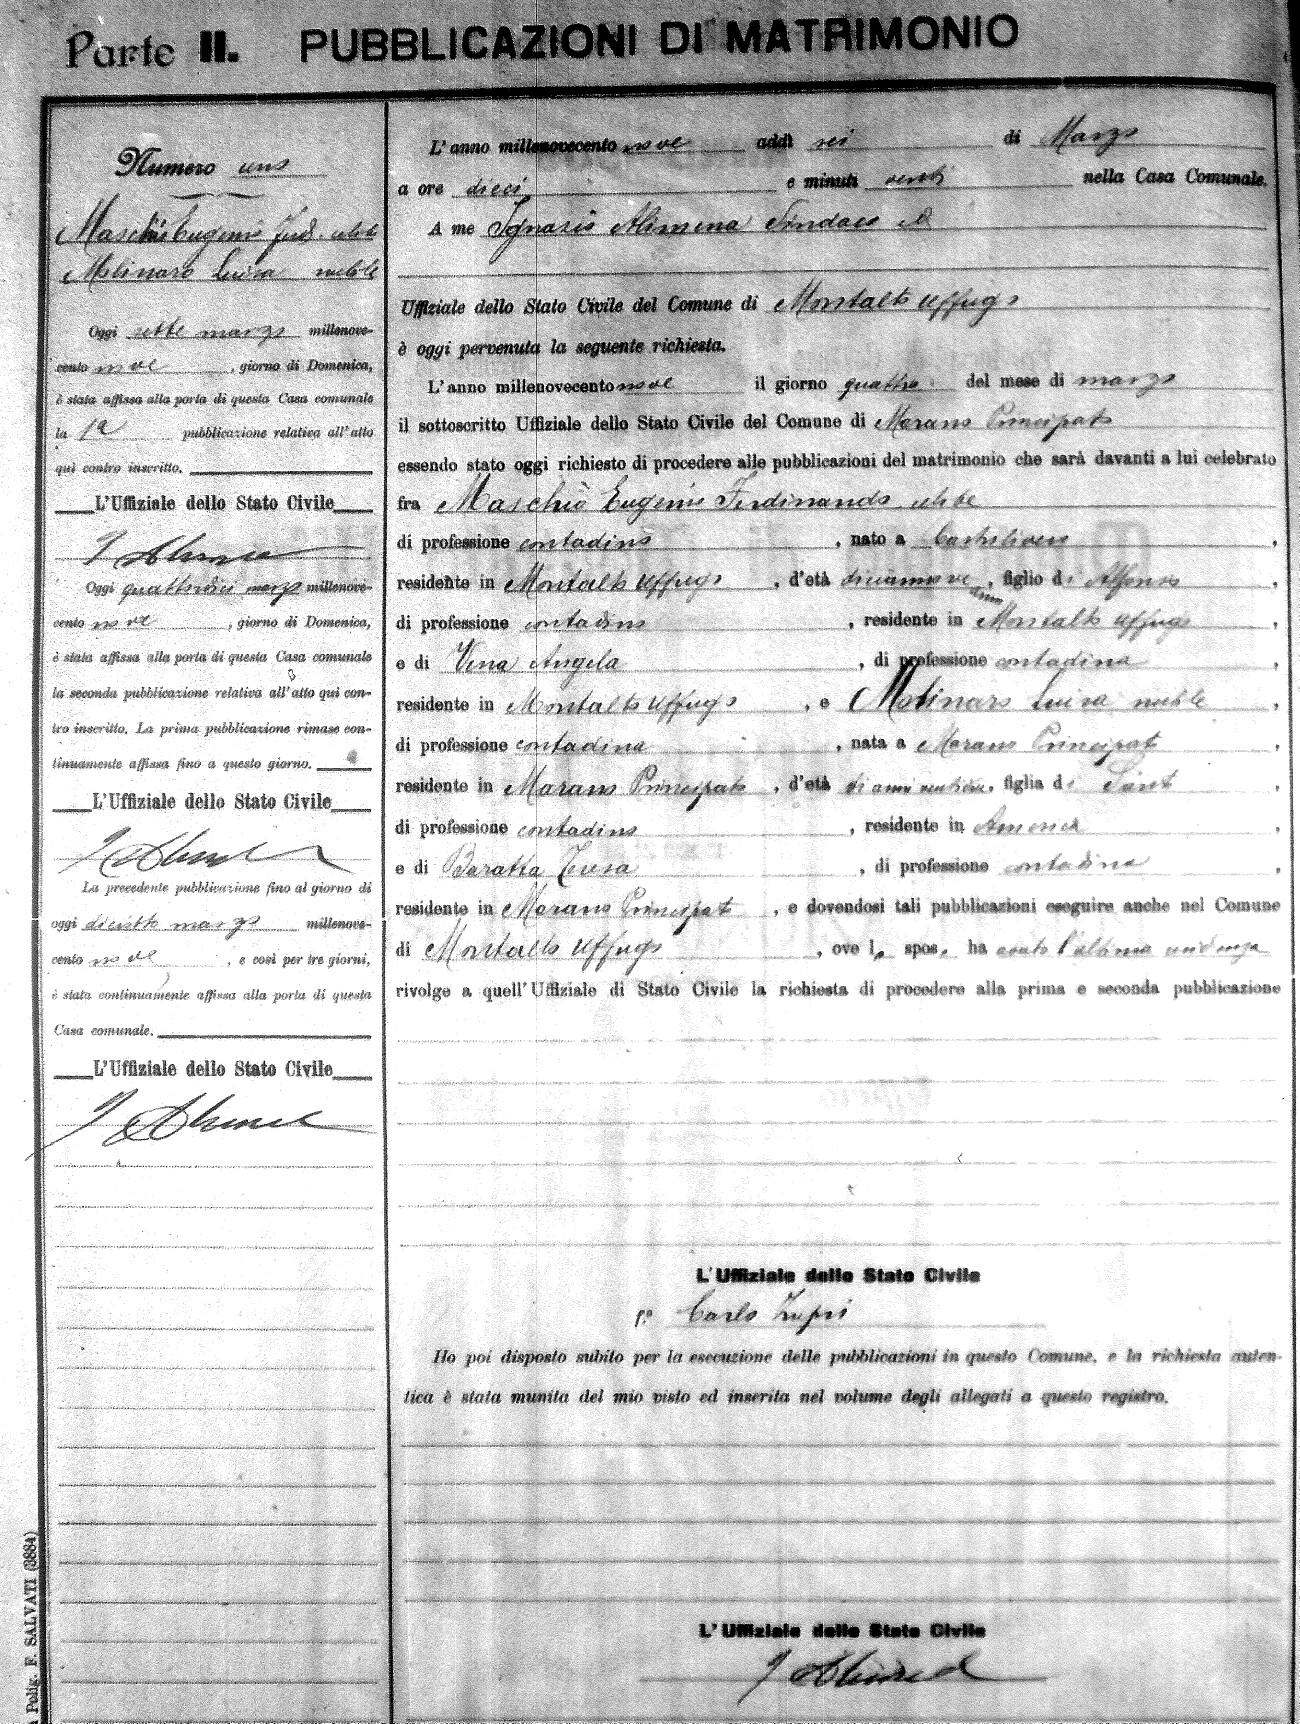 Parte II. PUBBLICAZIONI DI MATRIMONIO
Numero uno
Maschio Eugenio Ferd. celibe
Molinaro Luisa nubile
Oggi sette marzo millenove-
cento nove, giorno di Domenica,
è stata affissa alla porta di questa Casa comunale
la 1a pubblicazione relativa all'atto
qui contro inscritto.
L'Uffiziale dello Stato Civile
I Alimena
Oggi quattordici marzo millenove-
cento nove, giorno di Domenica,
è stata affissa alla porta di questa Casa comunale
la seconda pubblicazione relativa all'atto qui con-
tro inscritto. La prima pubblicazione rimase con-
tinuamente affissa fino a questo giorno.
L'Uffiziale dello Stato Civile
I Alimena
La precedente pubblicazione fino al giorno di
oggi diciotto marzo millenove-
cento nove, e così per tre giorni,
è stata continuamente affissa alla porta di questa
Casa comunale.
L'Uffiziale dello Stato Civile
I Alimena
L'anno millenovecento nove addì sei di Marzo
a ore dieci e minuti venti nella Casa Comunale.
A me Ignazio Alimena Sindaco ed
Uffiziale dello Stato Civile del Comune di Montalto Uffugo
è oggi pervenuta la seguente richiesta.
L'anno millenovecento nove il giorno quattro del mese di marzo
il sottoscritto Uffiziale dello Stato Civile del Comune di Marano Principato
essendo stato oggi richiesto di procedere alle pubblicazioni del matrimonio che sarà davanti a lui celebrato
fra Maschio Eugenio Ferdinando celibe
di professione contadino, nato a
residente in Montalto Uffugo, d'età diciannove anni, figlio di Alfonso,
di professione contadino, residente in Montalto Uffugo,
e di Vena Angela, di professione contadina,
residente in Montalto Uffugo, e Molinaro Luisa nubile,
di professione contadina, nata a Marano Principato,
residente in Marano Principato, d'età di anni, figlia di Santo,
di professione contadino, residente in America,
e di Baratta Teresa, di professione contadina,
residente in Marano Principato, e dovendosi tali pubblicazioni eseguire anche nel Comune
di Montalto Uffugo, ove lo sposo ha avuto l'ultima residenza
rivolge a quell'Uffiziale di Stato Civile la richiesta di procedere alla prima e seconda pubblicazione
L'Uffiziale dello Stato Civile
Carlo
Ho poi disposto subito per la esecuzione delle pubblicazioni in questo Comune, e la richiesta auten-
tica è stata munita del mio visto ed inserita nel volume degli allegati a questo registro.
L'Uffiziale dello Stato Civile
I Alimena
Polig. F. SALVATI (3884)